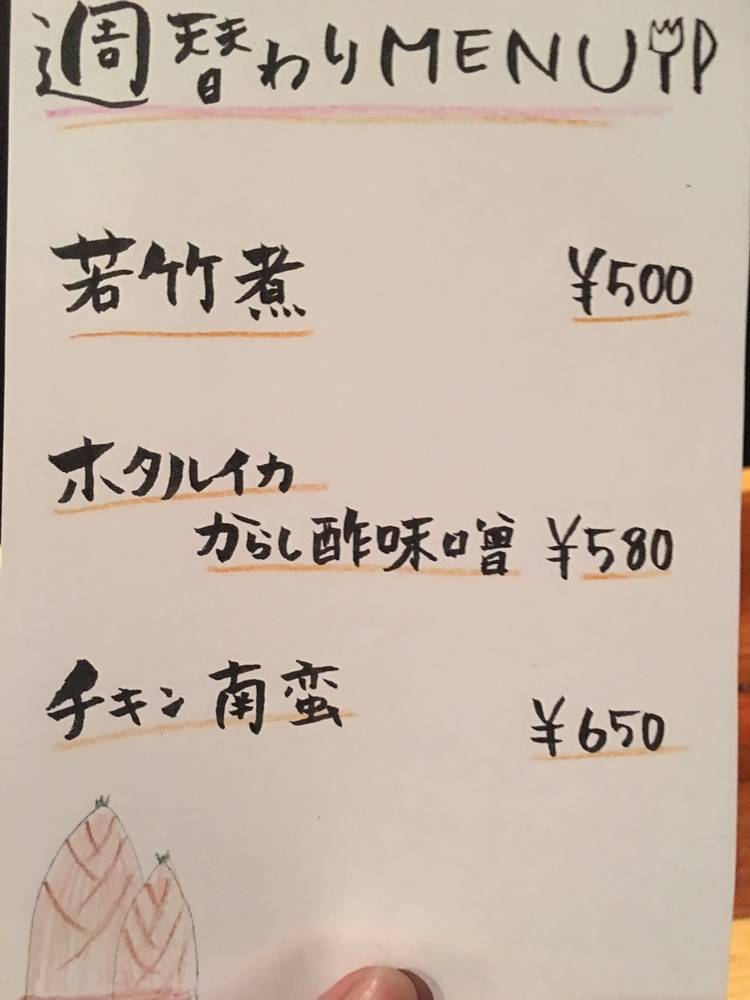 週替わりMENU
若竹煮 ¥500
ホタルイカ
からし酢味噌 ¥580
チキン南蛮 ¥650